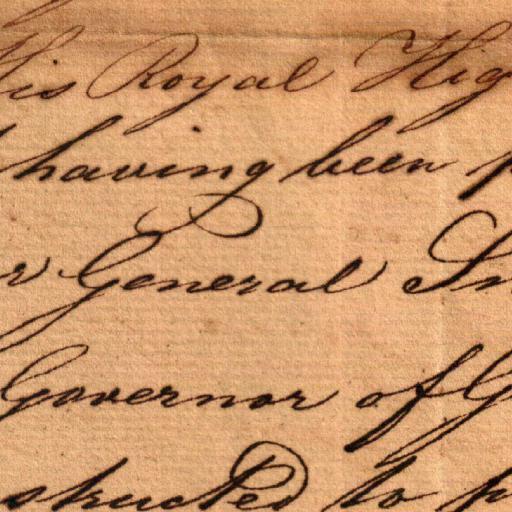 His Royal Hig
having been p
r General In
Governor of G
structed to p